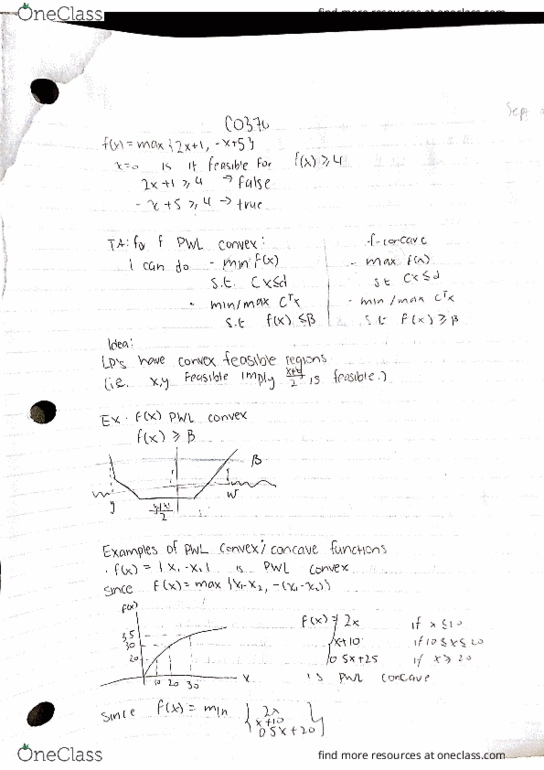 OneClass
find more resources at oneclass.com
Sept
CO370
f(x) = max {2x+1, -x+5}
x=0 is it feasible for f(x) ≥ 4
2x+1 ≥ 4 → false
-x+5 ≥ 4 → true
for f PWL convex:
i can do - min f(x)
s.t. Cx≤d
· min/max cᵀx
s.t f(x) ≤ β
f-concave
- max f(x)
st Cx≤d
- min/max cᵀx
s.t f(x) ≥ β
Idea:
LP's have convex feasible regions
(i.e. x,y feasible imply x+y/2 is feasible.)
Ex. f(x) PWL convex
f(x) ≥ β
β
y
w
Examples of PWL convex/concave functions
· f(x) = |x₁-x₂| is PWL convex
since f(x) = max {x₁-x₂, -(x₁-x₂)}
f(x)
35
30
20
10 20 30 x
f(x) = 2x if x ≤ 10
x+10 if 10 ≤ x ≤ 20
0.5x+25 if x ≥ 20
is PWL concave
since f(x) = min { 2x
x+10
0.5x+20 }
OneClass
find more resources at oneclass.com